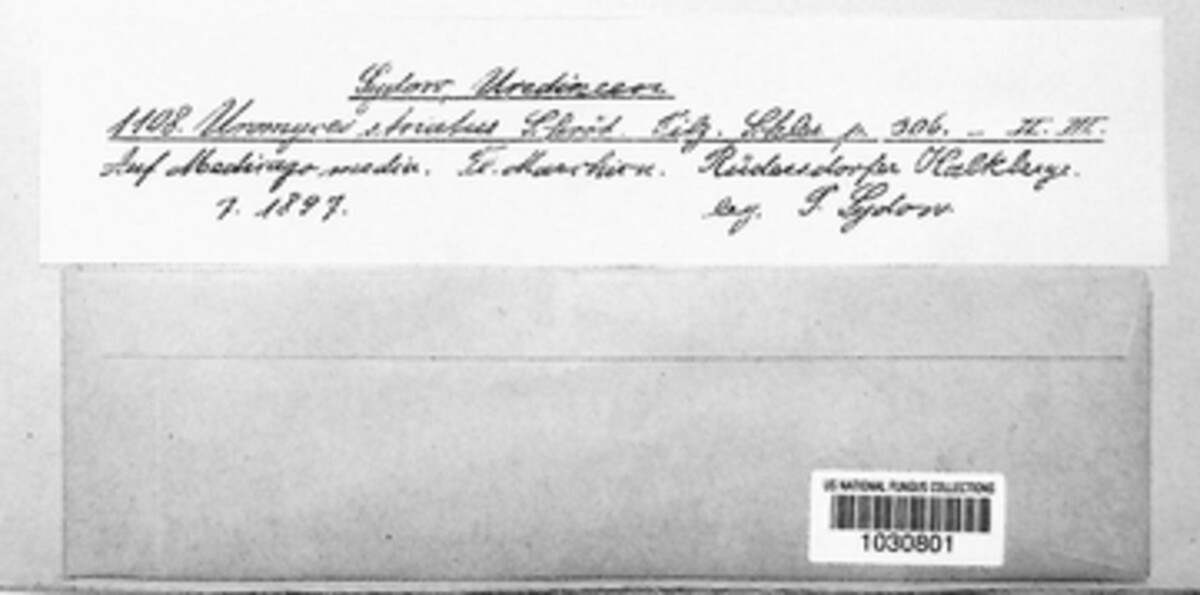 Sydow, Uredineen
1108. Uromyces striatus Schröt. Pilz. Schles. p. 306. – II. III.
Auf Medicago media. Fl. March. Rüdersdorfer Kalkberge.
7. 1897. leg. P. Sydow.
US NATIONAL FUNGUS COLLECTIONS
1030801